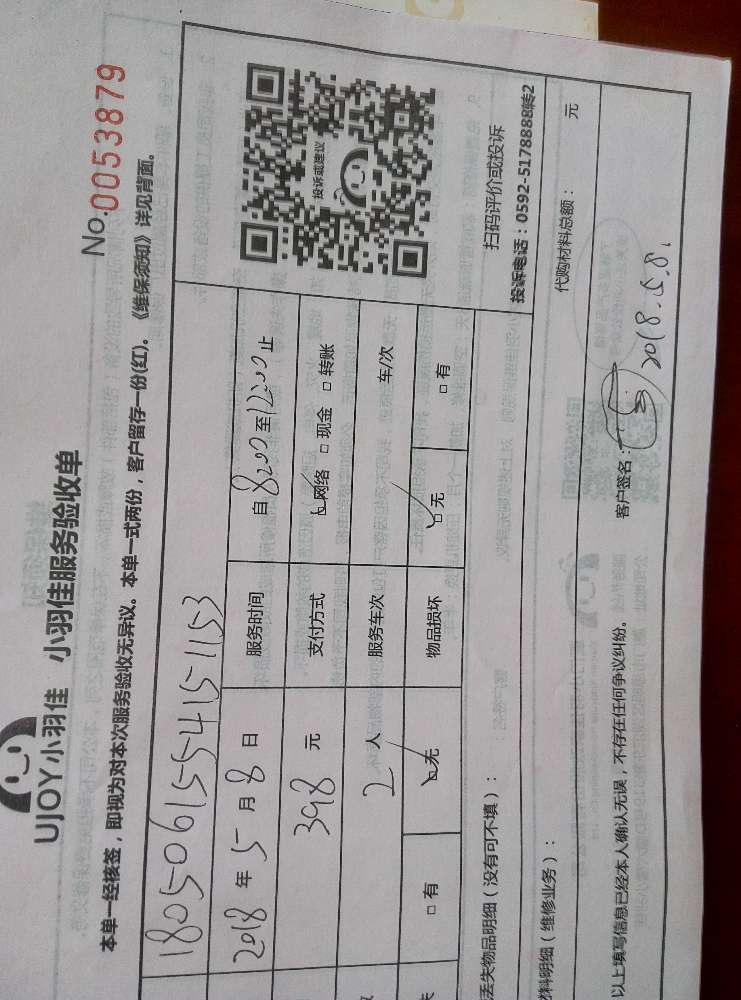 No.0053879
UJOY小羽佳 小羽佳服务验收单
本单一经核签，即视为对本次服务验收无异议。本单一式两份，客户留存一份(红)。《维保须知》详见背面。
180506155415-1153
2018 年 5 月 8 日 服务时间 自 8:00 至 12:00 止
398 元 支付方式 网络 现金 转账
2 人 服务车次 车/次
有 无 物品损坏 无 有
投诉或建议
扫码评价或投诉
投诉电话：0592-5178888转2
丢失物品明细（没有可不填）：
材料明细（维修业务）： 代购材料总额： 元
以上填写信息已经本人确认无误，不存在任何争议纠纷。 客户签名： 2018.5.8.